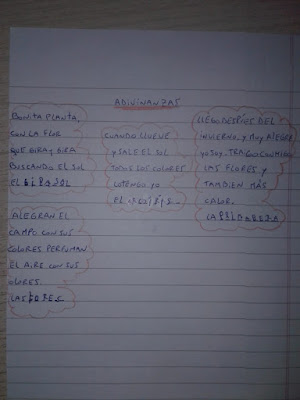 ADIVINANZAS
BONITA PLANTA,
CON LA FLOR
QUE GIRA Y GIRA
BUSCANDO EL SOL
EL GIRASOL
ALEGRAN EL
CAMPO CON SUS
COLORES PERFUMAN
EL AIRE CON SUS
OLORES.
LAS
CUANDO LLUEVE
Y SALE EL SOL
TODOS LOS COLORES
LOTENGO YO
EL
LLEGO DESPUES DEL
INVIERNO, Y MUY ALEGRE
YO SOY. TRAIGO CONMIGO
LAS FLORES Y
TAMBIEN MÁS
CALOR.
LA